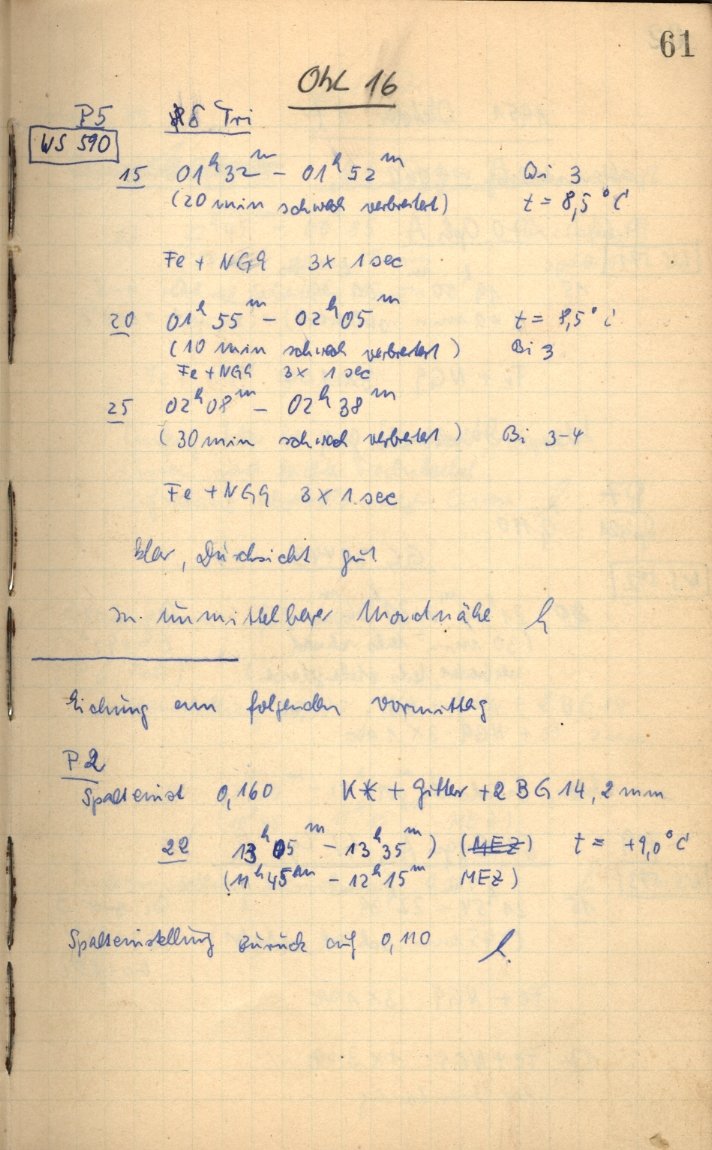 61
OHL 16
P5 δ Tri
WS 590
15 01ʰ32ᵐ - 01ʰ52ᵐ Bi 3
(20 min schwach verbreitert) t = 8,5°C
Fe + NG9 3x 1 sec
20 01ʰ55ᵐ - 02ʰ05ᵐ t = 8,5°C
(10 min schwach verbreitert) Bi 3
Fe + NG9 3x 1 sec
25 02ʰ08ᵐ - 02ʰ38ᵐ
(30 min schwach verbreitert) Bi 3-4
Fe + NG9 3x 1 sec
klar, Durchsicht gut
in unmittelbarer Mondnähe
Eichung am folgenden Vormittag
P2
Spalteinst 0,160 K* + Gitter + 2 BG 14, 2 mm
22 13ʰ05ᵐ - 13ʰ35ᵐ) (MEZ) t = +9,0°C
(11ʰ45ᵐ - 12ʰ15ᵐ MEZ)
Spalteinstellung zurück auf 0,110